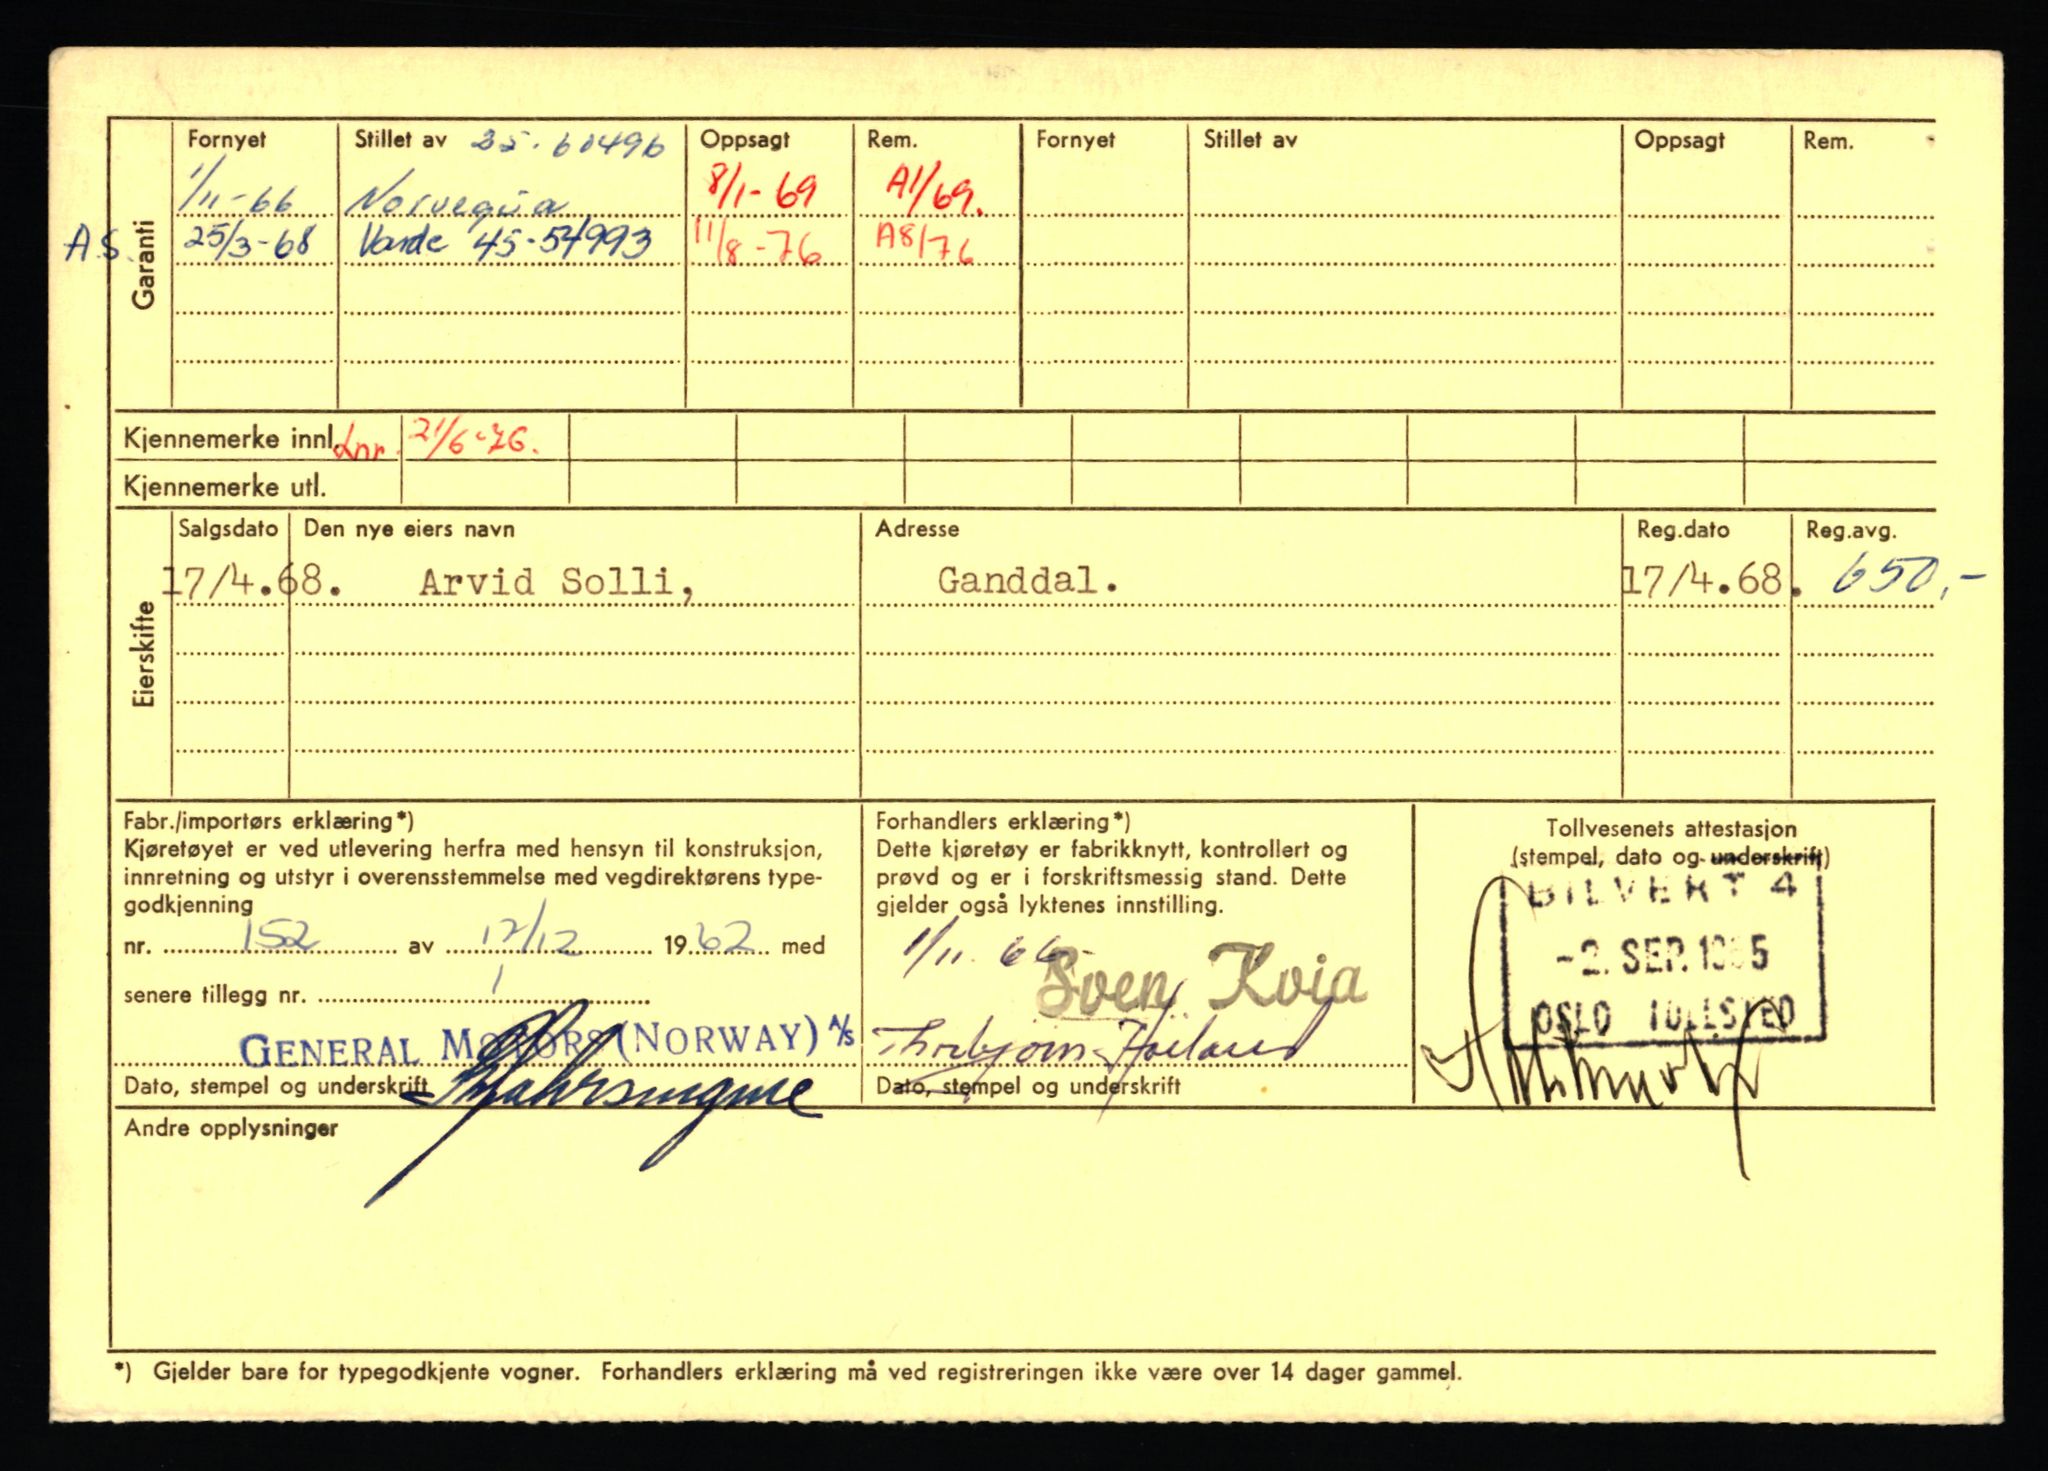 Fornyet Stillet av 25-60496 Oppsagt Rem. Fornyet Stillet av Oppsagt Rem.
1/11-66 Norvegia 8/1-69 A1/69.
A.S. 25/3-68 Varde 45-54993 11/8-76 A8/76
Garanti
Kjennemerke innl. Lnr. 21/6-76.
Kjennemerke utl.
Salgsdato Den nye eiers navn Adresse Reg.dato Reg.avg.
17/4.68. Arvid Solli, Ganddal. 17/4.68. 650,-
Eierskifte
Fabr./importørs erklæring*)
Kjøretøyet er ved utlevering herfra med hensyn til konstruksjon,
innretning og utstyr i overensstemmelse med vegdirektørens type-
godkjenning
nr. 152 av 12/12 1962 med
senere tillegg nr.
GENERAL MOTORS (NORWAY) A/S
Dato, stempel og underskrift
Forhandlers erklæring*)
Dette kjøretøy er fabrikknytt, kontrollert og
prøvd og er i forskriftsmessig stand. Dette
gjelder også lyktenes innstilling.
1/11. 66-
Sven Kvia
Torbjørn
Dato, stempel og underskrift
Tollvesenets attestasjon
(stempel, dato og underskrift)
BILVERT 4
-2. SEP. 1965
OSLO TOLLSTED
Andre opplysninger
*) Gjelder bare for typegodkjente vogner. Forhandlers erklæring må ved registreringen ikke være over 14 dager gammel.